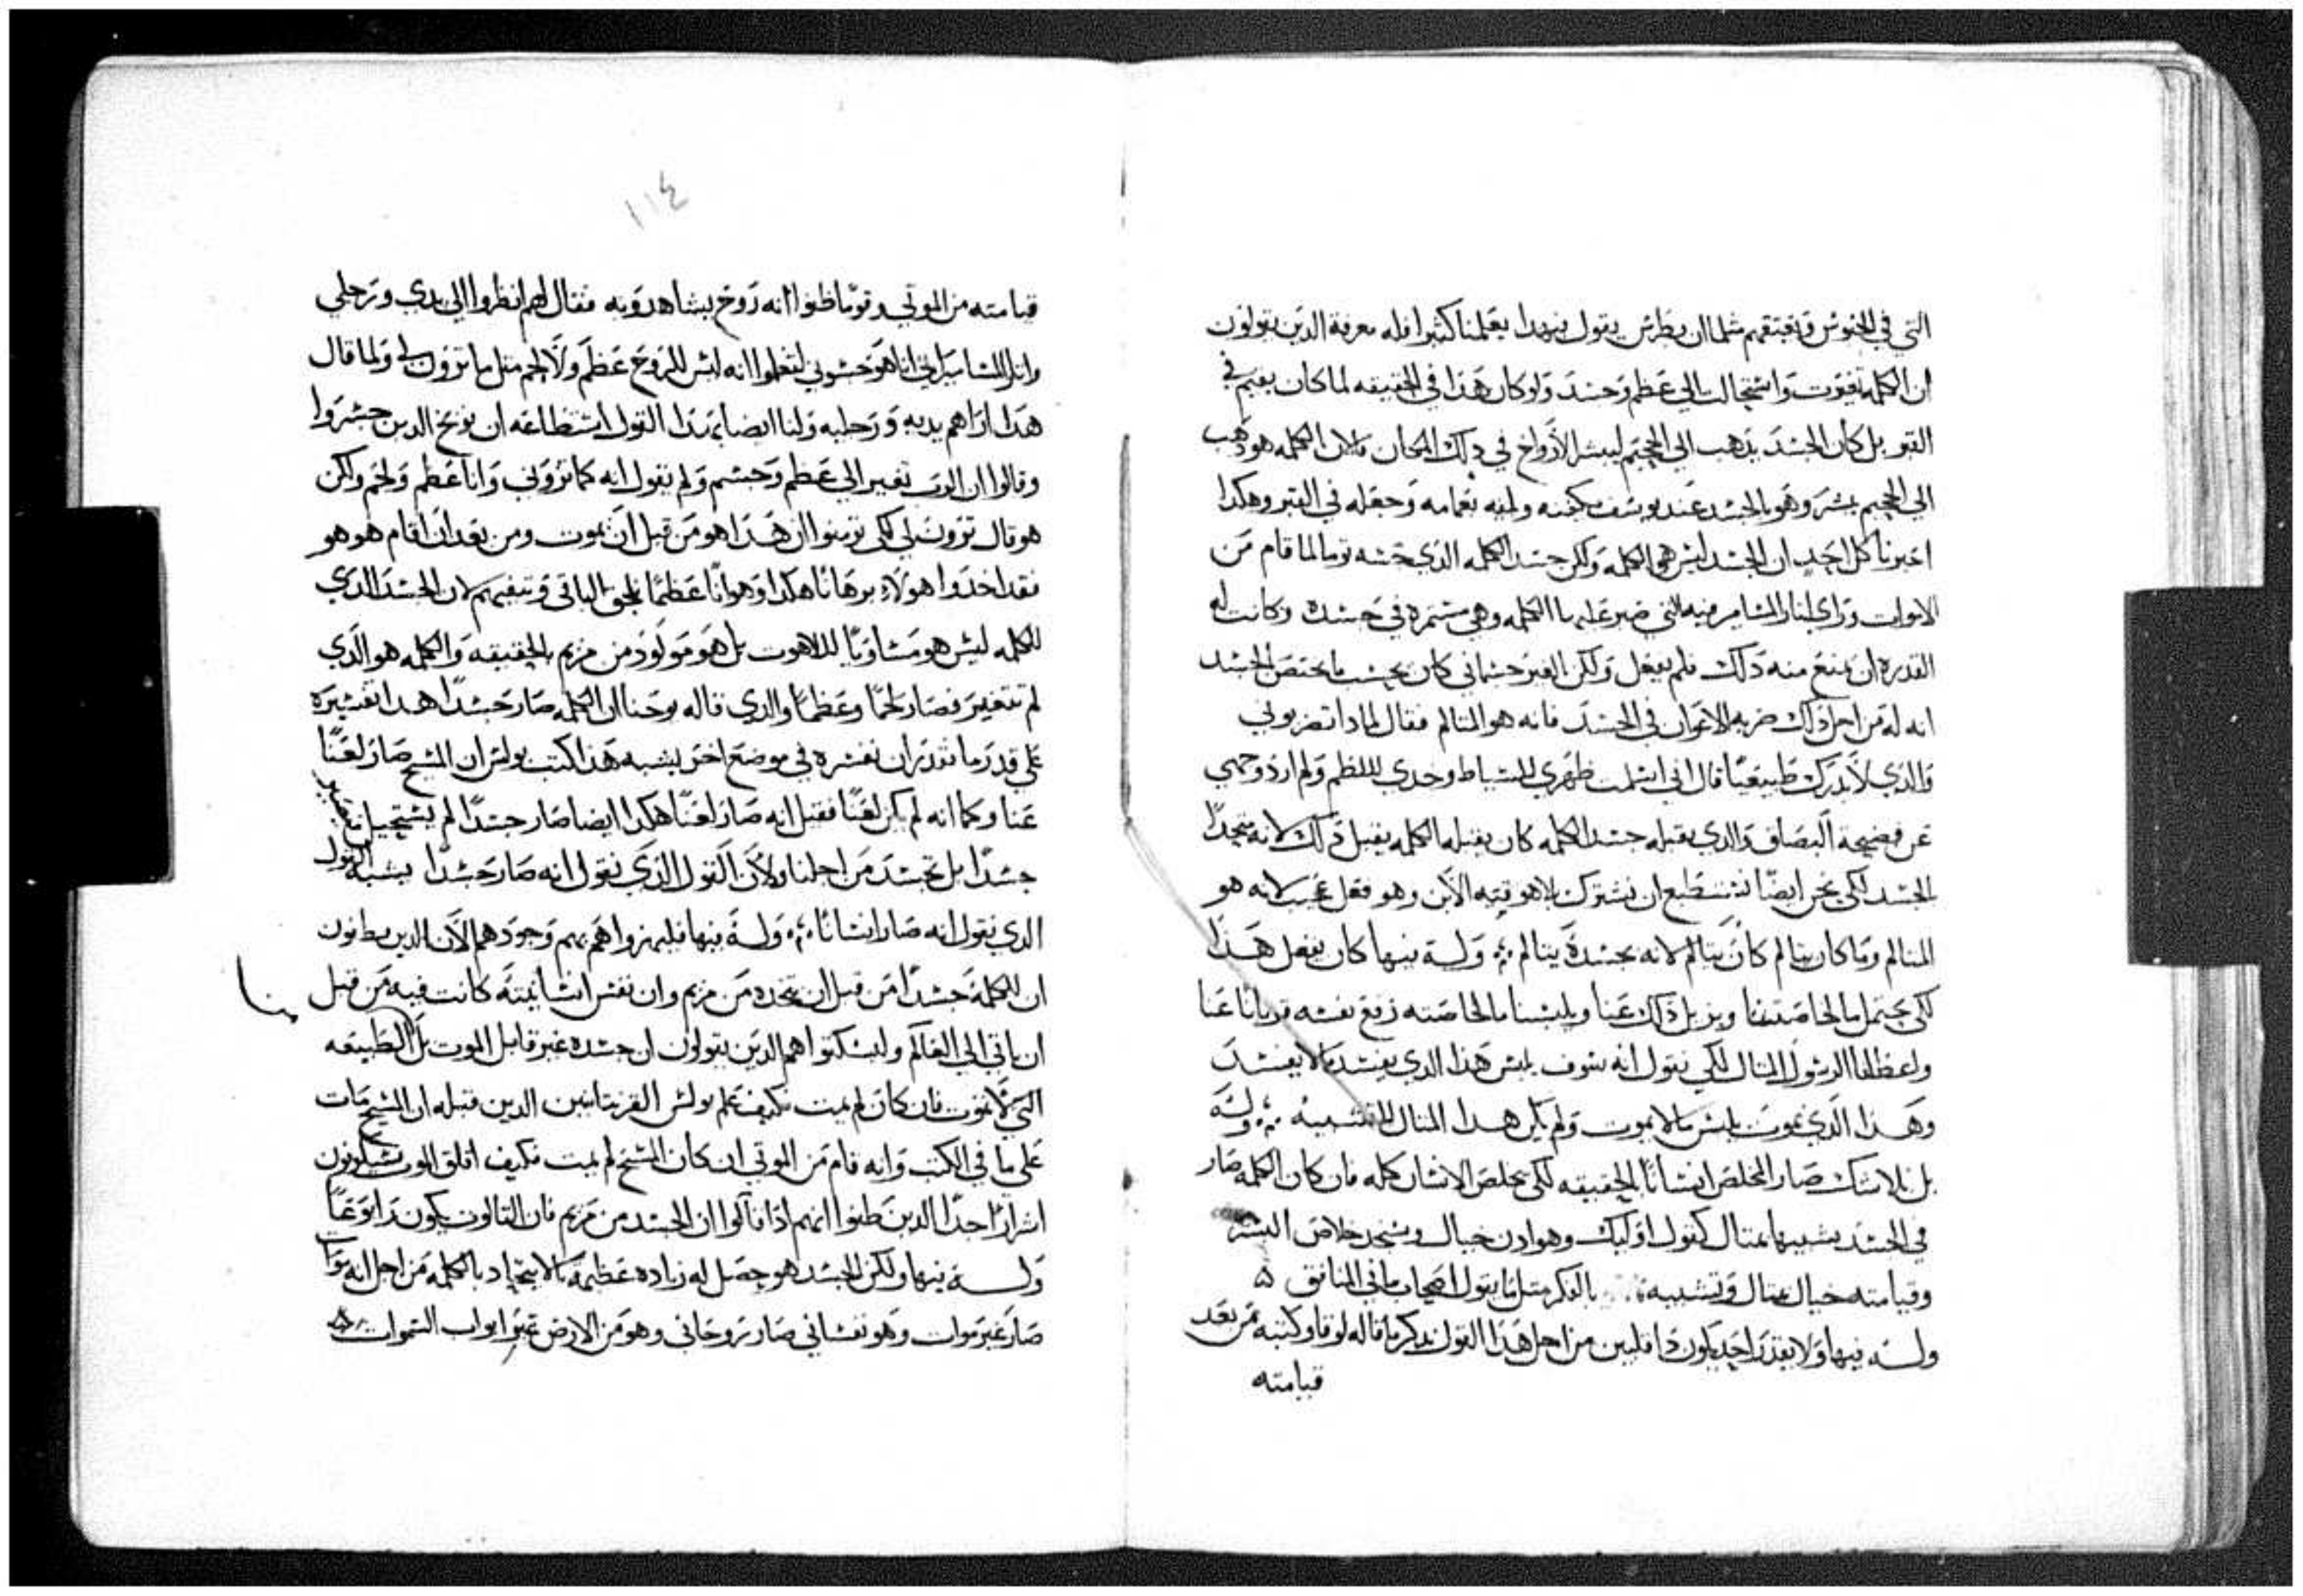 التي في الحبوس وبعتقهم مثلما ان بطرس يقول فبهدا يعلمنا كثيرا قله معرفة الدين يقولون
ان الكلمه تغيرت واستحالت الي عظم وجسد ولو كان هذا في الحقيقه لما كان يقيم في
القبر بل كان الجسد يذهب الي الجحيم ليبشر الارواح في ذلك المكان ولان الكلمه هو ذهب
الي الجحيم بشر وهو بالجسد عند يوسف يكفنه ولفه بعمامه وجعله في القبر وهكدا
اخبرنا كل احد ان الجسد ليس هو الكلمه ولكن جسد الكلمه الذي جسه توما لما قام من
الاموات وراي اثار المسامير فيه التي صبر عليها الكلمه وهي مسمره في جسده وكانت له
القدره ان يمنع منه ذلك فلم يفعل ولكن الغير جسماني كان يحسب ما يختص الجسد
انه له من اجل ذلك ضربه الاعوان في الجسد فانه هو المتالم فقال لمادا تضربوني
والذي لا يدرك طبيعيا قال اني اسلمت ظهري للسياط وخدي لللطم ولم ارد وجهي
عن فضيحة البصاق والدي يقبله جسد الكلمه كان يقبله الكلمه يقبل ذلك لانه متحدا
الجسد لكي نحن ايضا نستطيع ان نشترك بلاهوتيته الان وهو فعل عجيب لانه هو
المتالم وما كان يتالم كان يتالم لانه بجسده يتالم وله فيها كان يفعل هذا
لكي يحتمل ما لخاصتنا ويزيل ذلك عنا ويلبسنا ما لخاصته رفع نفسه قربانا عنا
واعطانا الرسول المثال لكي يقول انه سوف يلبس هذا الدي يفسد ما لا يفسد
وهذا الذي يموت يلبس ما لا يموت ولم يكن هدا المثال للتشبيه وله
بل بلا شك صار المخلص انسانا بالحقيقه لكي يخلص الانسان كله فان كان الكلمه صار
في الجسد بشبيها بمثال كقول اوليك وهو ادن خيال ويتحد خلاص البشر
وقيامته خيال بمثال وتشبيه بالفكر مثل ما يقول اصحاب ماني المنافق
وله فيها ولا يقدر احد يكون ذا قلبين من اجل هذا القول نذكر ما قاله لوقا وكتبه من بعد
قيامته
١١٤
قيامته من الموتي وقوما ظنوا انه روح يشاهدونه فقال لهم انظروا الي يدي ورجلي
واثار المسامير اني انا هو جسوني لتعلموا انه ليس للروح عظم ولا لحم مثل ما ترون لي ولما قال
هذا اراهم يديه ورجليه ولنا ايضا بهذا القول استطاعه ان نوبخ الدين جسروا
وقالوا ان الرب تغير الي عظم وجسم ولم يقول انه كما تروني وانا عظم ولحم ولكن
هو قال ترون لي لكي تومنوا ان هذا هو من قبل ان يموت ومن بعد ان اقام هو هو
فقد اخدوا هولاء برهانا هكدا وهوانا عظيما يلحق الباقي وتبقيتهم لان الجسد الدي
للكلمه ليس هو مساويا لللاهوت بل هو مولود من مريم بالحقيقه والكلمه هو الذي
لم تتغير فصار لحما وعظما والدي قاله يوحنا ان الكلمه صار جسدا هدا تفسيره
علي قدر ما نقدر ان نفسره في موضع اخر يشبه هذا كتب بولس ان المسيح صار لعنا
عنا وكما انه لم يكن لعنا فقيل انه صار لعنا هكدا ايضا صار جسدا لم يستحيل
جسدا بل تجسد من اجلنا ولان القول الذي يقول انه صار جسدا يشبه القول
الدي يقول انه صار انسانا وله فيها فليهزوا هم بهم وجودهم الان الدين يظنون
ان للكلمة جسدا من قبل ان يتخده من مريم وان نفس انسانيته كانت فيه من قبل
ان ياتي الي العالم وليسكتوا هم الدين يقولون ان جسده غير قابل الموت بل الطبيعه
التي لا تموت فان كان لم يمت فكيف علم بولس القرنتانيين الدين قبله ان المسيح مات
علي ما في الكتب وانه قام من الموتي ان كان المسيح لم يمت فكيف اقلق الموت يشكونون
اشرارا جدا الدين ظنوا انهم اذا قالوا ان الجسد من مريم فان الثالوث يكون رابوعا
وله فيها ولكن الجسد هو حصل له زياده عظيمه بالاتحاد بالكلمه من اجل انه مواتا
صار غير موات وهو نفساني صار روحاني وهو من الارض عبر ابواب السموات